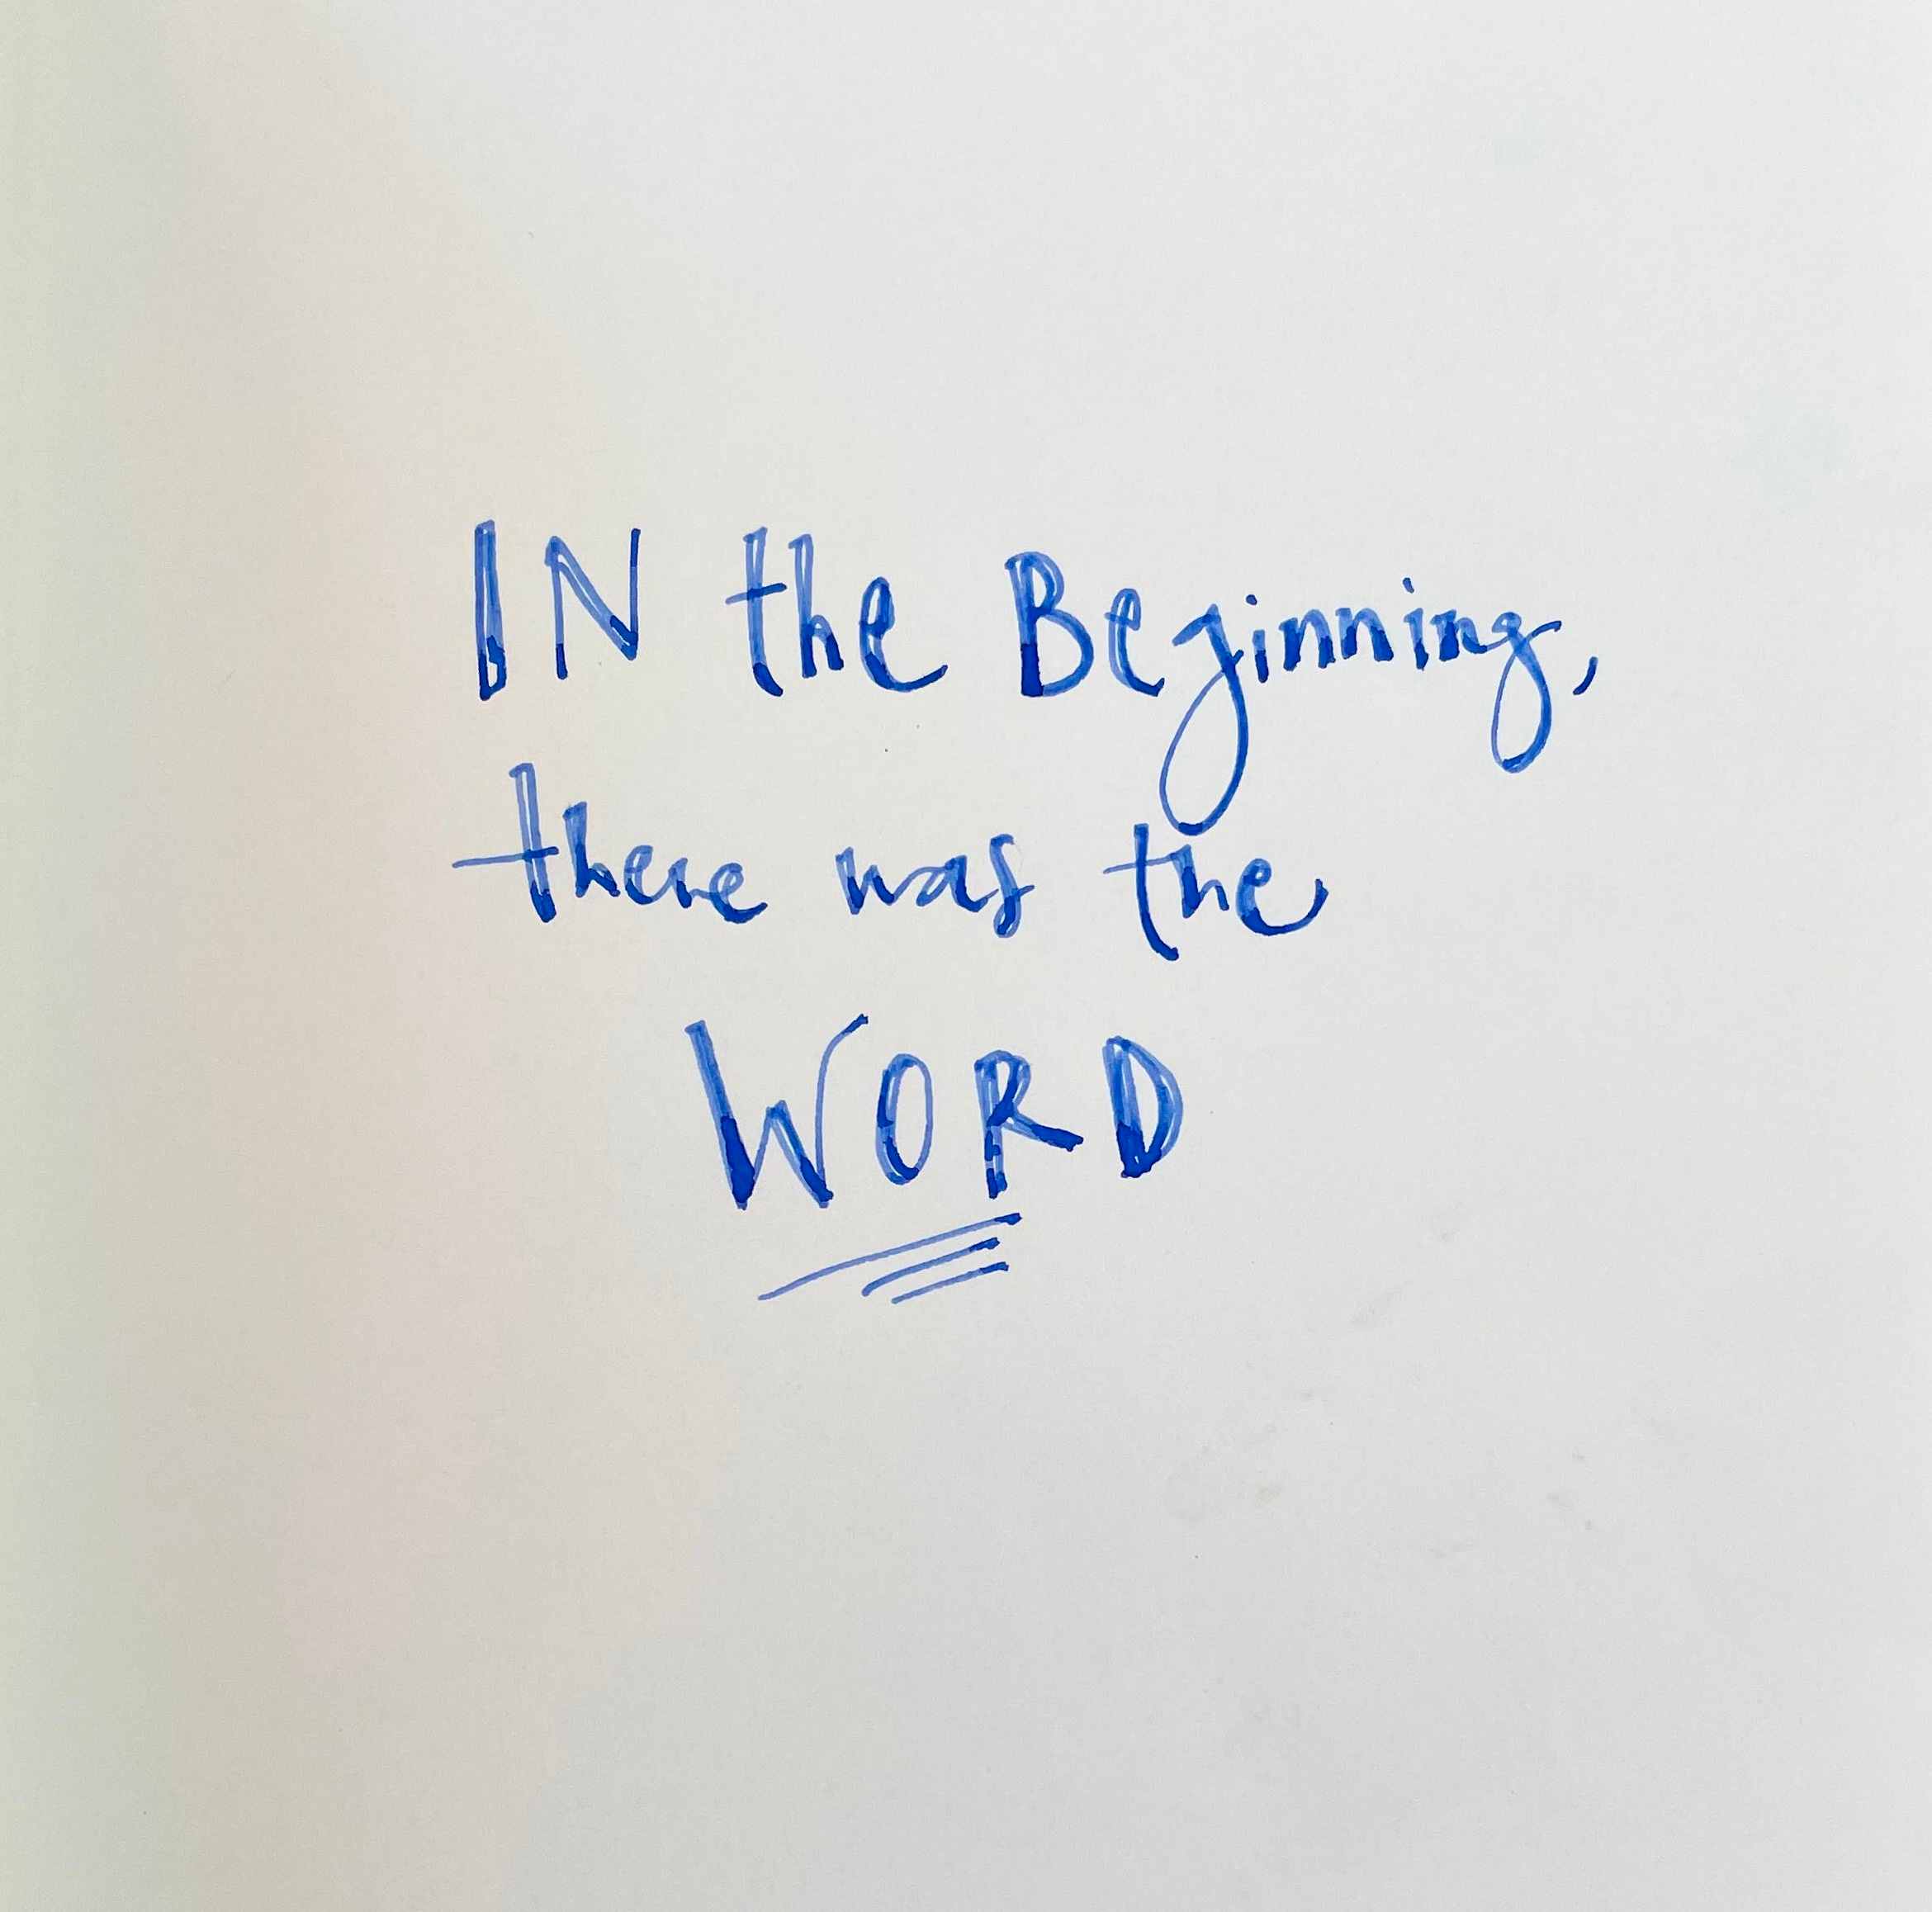 IN the Beginning,
there was the
WORD